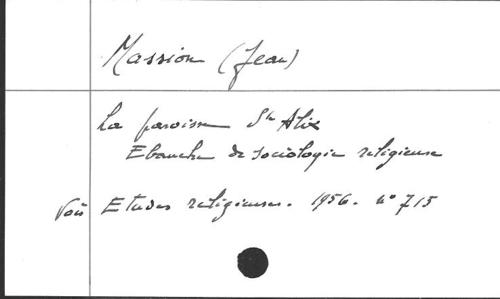 Massion (Jean)
La paroisse Ste Alix
Ebauche de sociologie religieuse
Voir Etudes religieuses. 1956. n° 715